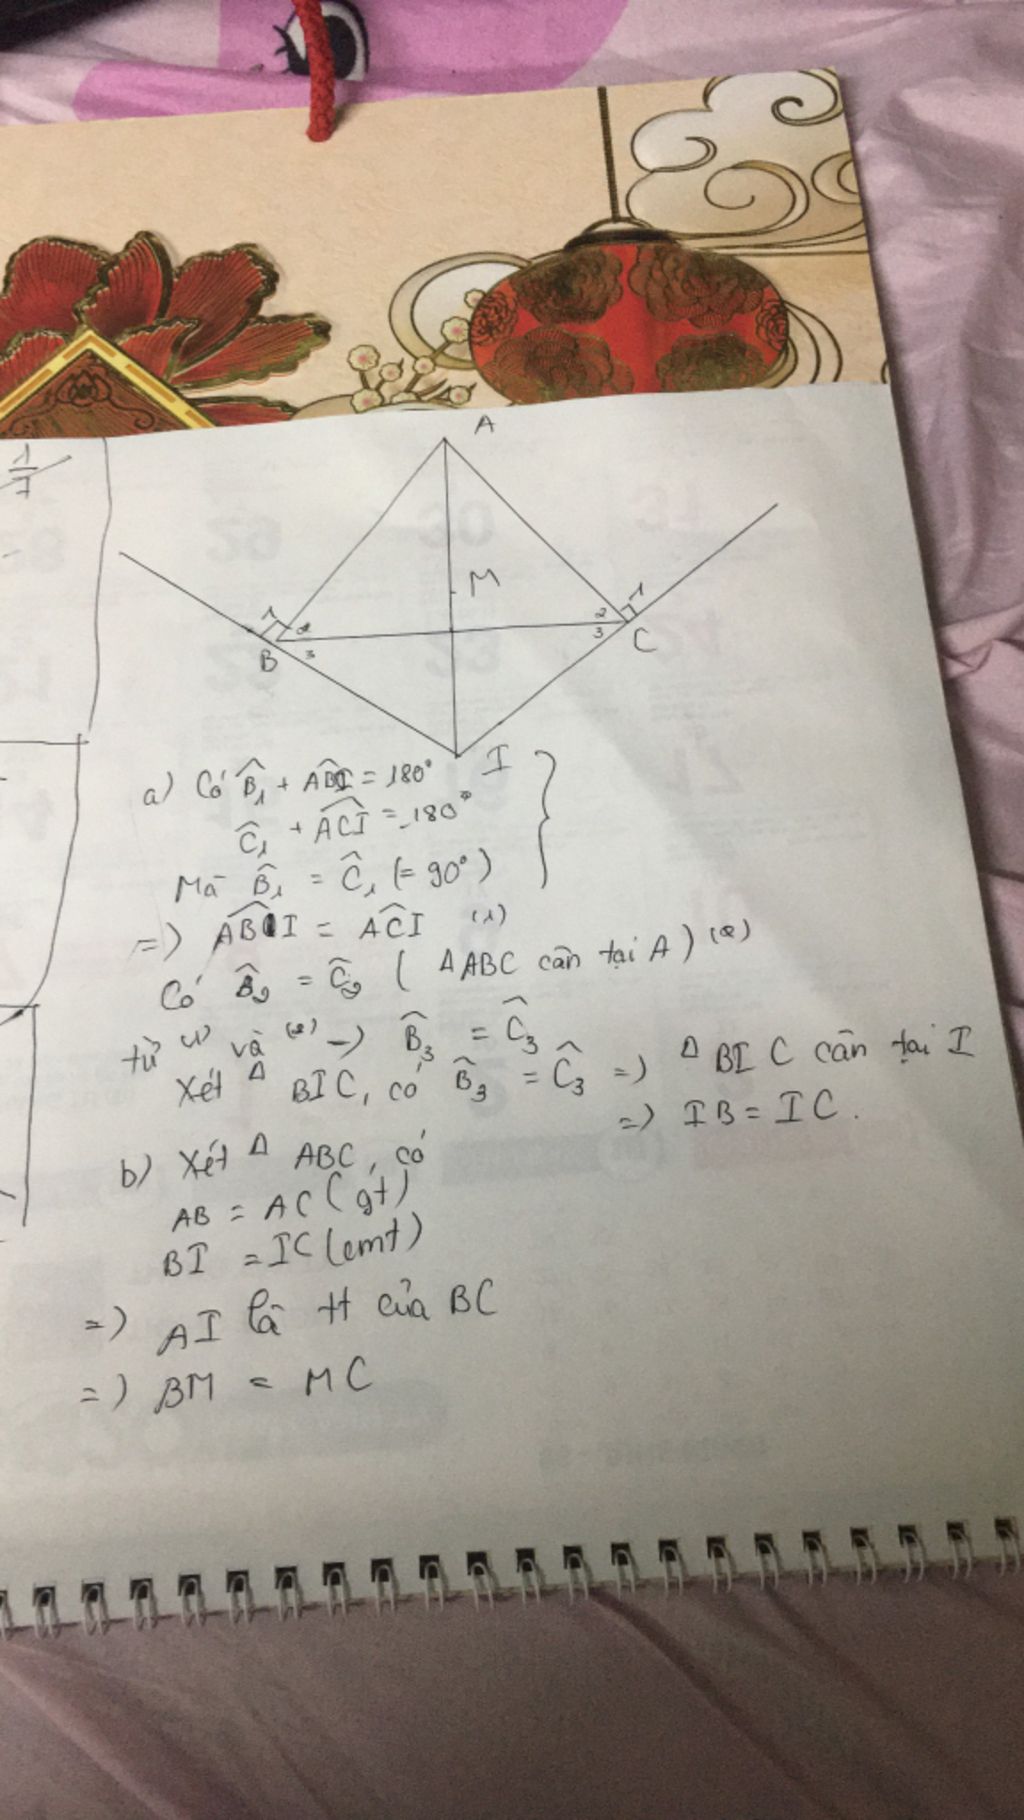 1/7
A
M
1
2
B
3
2
1
3
C
I
a) Có B̂₁ + ABI = 180°
Ĉ₁ + ACI = 180°
Mà B̂₁ = Ĉ₁ (= 90°)
=) ABI = ACI (1)
Có B̂₂ = Ĉ₂ ( Δ ABC cân tại A ) (2)
từ (1) và (2) -) B̂₃ = Ĉ₃
Xét Δ BIC, có B̂₃ = Ĉ₃ =) Δ BIC cân tại I
=) IB = IC.
b) Xét Δ ABC, có
AB = AC (gt)
BI = IC (cmt)
=) AI là tt của BC
=) BM = MC